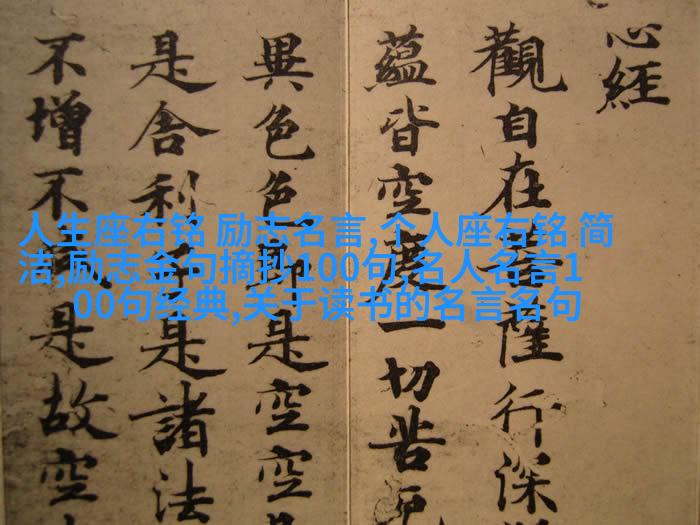 心經
觀自在菩薩行深
蘊皆空度一切苦厄
異色色即是空空
是舍利子是諸法
不增不減是故空
人生座右铭 励志名言,个人座右铭 简
洁,励志金句摘抄100句 名人名言1
00句经典,关于读书的名言名句